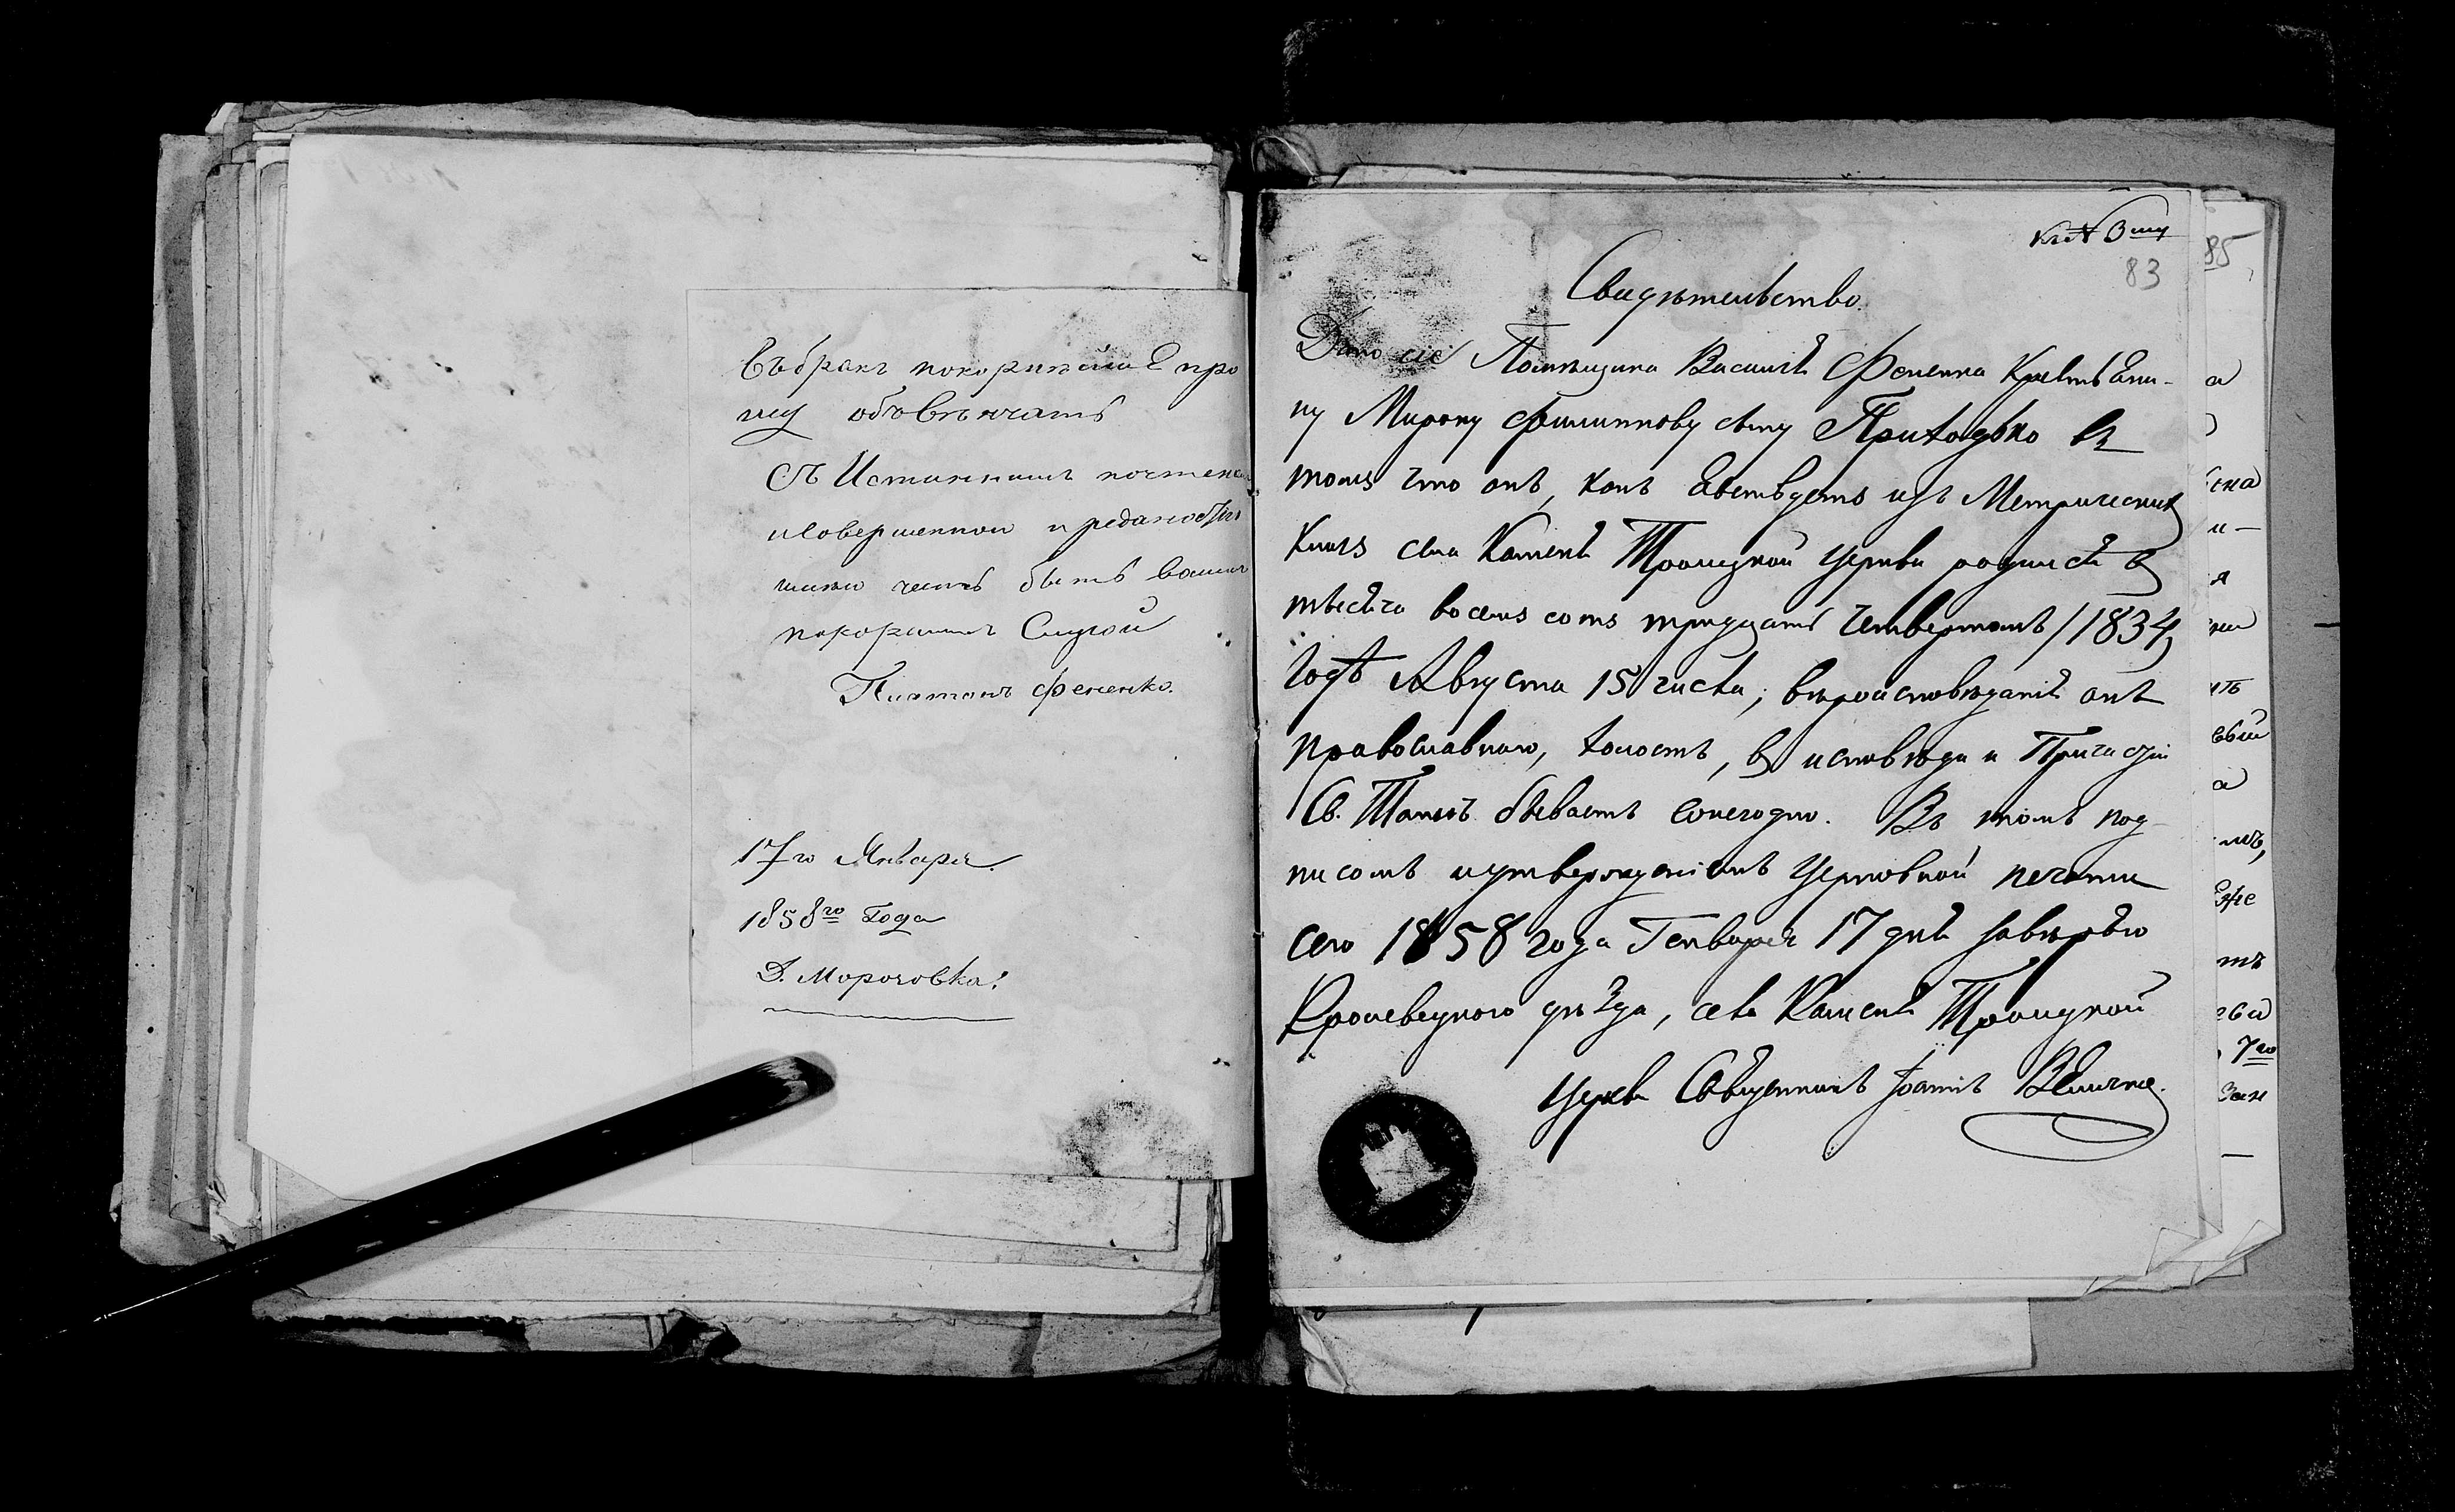 Въбракъ покорнѣйше про
шу обвѣнчать
Съ Истиннымъ почтен
исовершенною преданностію
имѣю честь быть вашимъ
покорнымъ Слугой
Платонъ Фененко.
17го Января.
1858го Года
Д. Морочовка.
83
Свидѣтельство.
Дано сіе Помѣщика Василія Фененка Крестьяни-
ну Мирону Филиппову сыну Приходько въ
томъ что онъ, какъ явствуетъ изъ Метрическихъ
Книгъ села Каменя Троицкой Церкви родился въ
тысяча восемь сотъ тридцать Четвертомъ /1834/
Годѣ Августа 15 числа, вѣроисповѣданія онъ
Православнаго, холостъ, въ исповѣди и Причастіи
Св. Таинъ бываетъ ежегодно. Въ томъ под-
писомъ иутвержденіемъ Церковной печати
сего 1858 года Генваря 17 дня завѣряю
Кролевецкого уѣзда, села Каменя Троицкой
Церкви Священникъ Іоаннъ Величко.
85